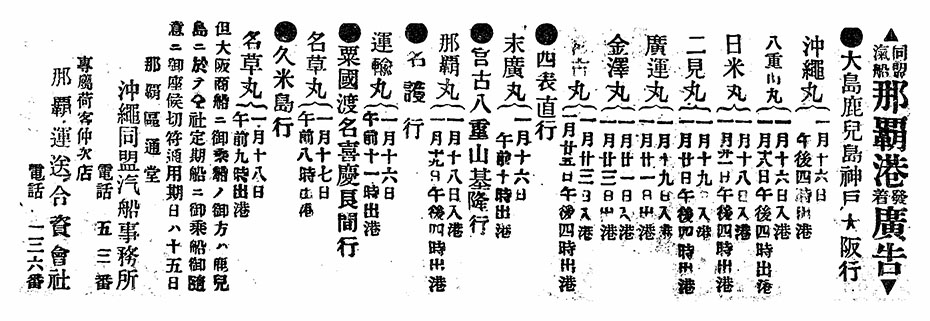 ▲同盟汽船那覇港発着廣告▼
●大島鹿兒島神戸大阪行
沖繩丸 一月十六日午後四時出港
八重山丸 一月十六日入港
一月 日午後四時出港
日米丸 一月十八日入港
一月 日午後四時出港
二見丸 一月十九 入港
一月廿日午後四時出港
廣運丸 一月十九日入港
一月廿 日 出港
金澤丸 一月廿一日入港
一月廿三日 出港
丸 一月廿三日入港
一月廿五日午後四時出港
●四表直行
末廣丸 一月十六日
午前十時出港
●宮古八重山基隆行
那覇丸 一月十八日入港
一月 日午後四時出港
●名護行
運輸丸 一月十六日
午前十一時出港
●粟國渡名喜慶良間行
名草丸 一月十七日
午前八時出港
●久米島行
名草丸 一月十八日
午前九時出港
但大阪商船ニ御乘船ノ御方ハ鹿兒
島ニ於テ仝社定期船ニ御乘船御隨
意ニ御座候切符通用期日ハ十五日
那覇區通堂
沖繩同盟汽船事務所
電話 五三番
專屬荷客仲次店
那覇運送合資會社
電話 一三六番